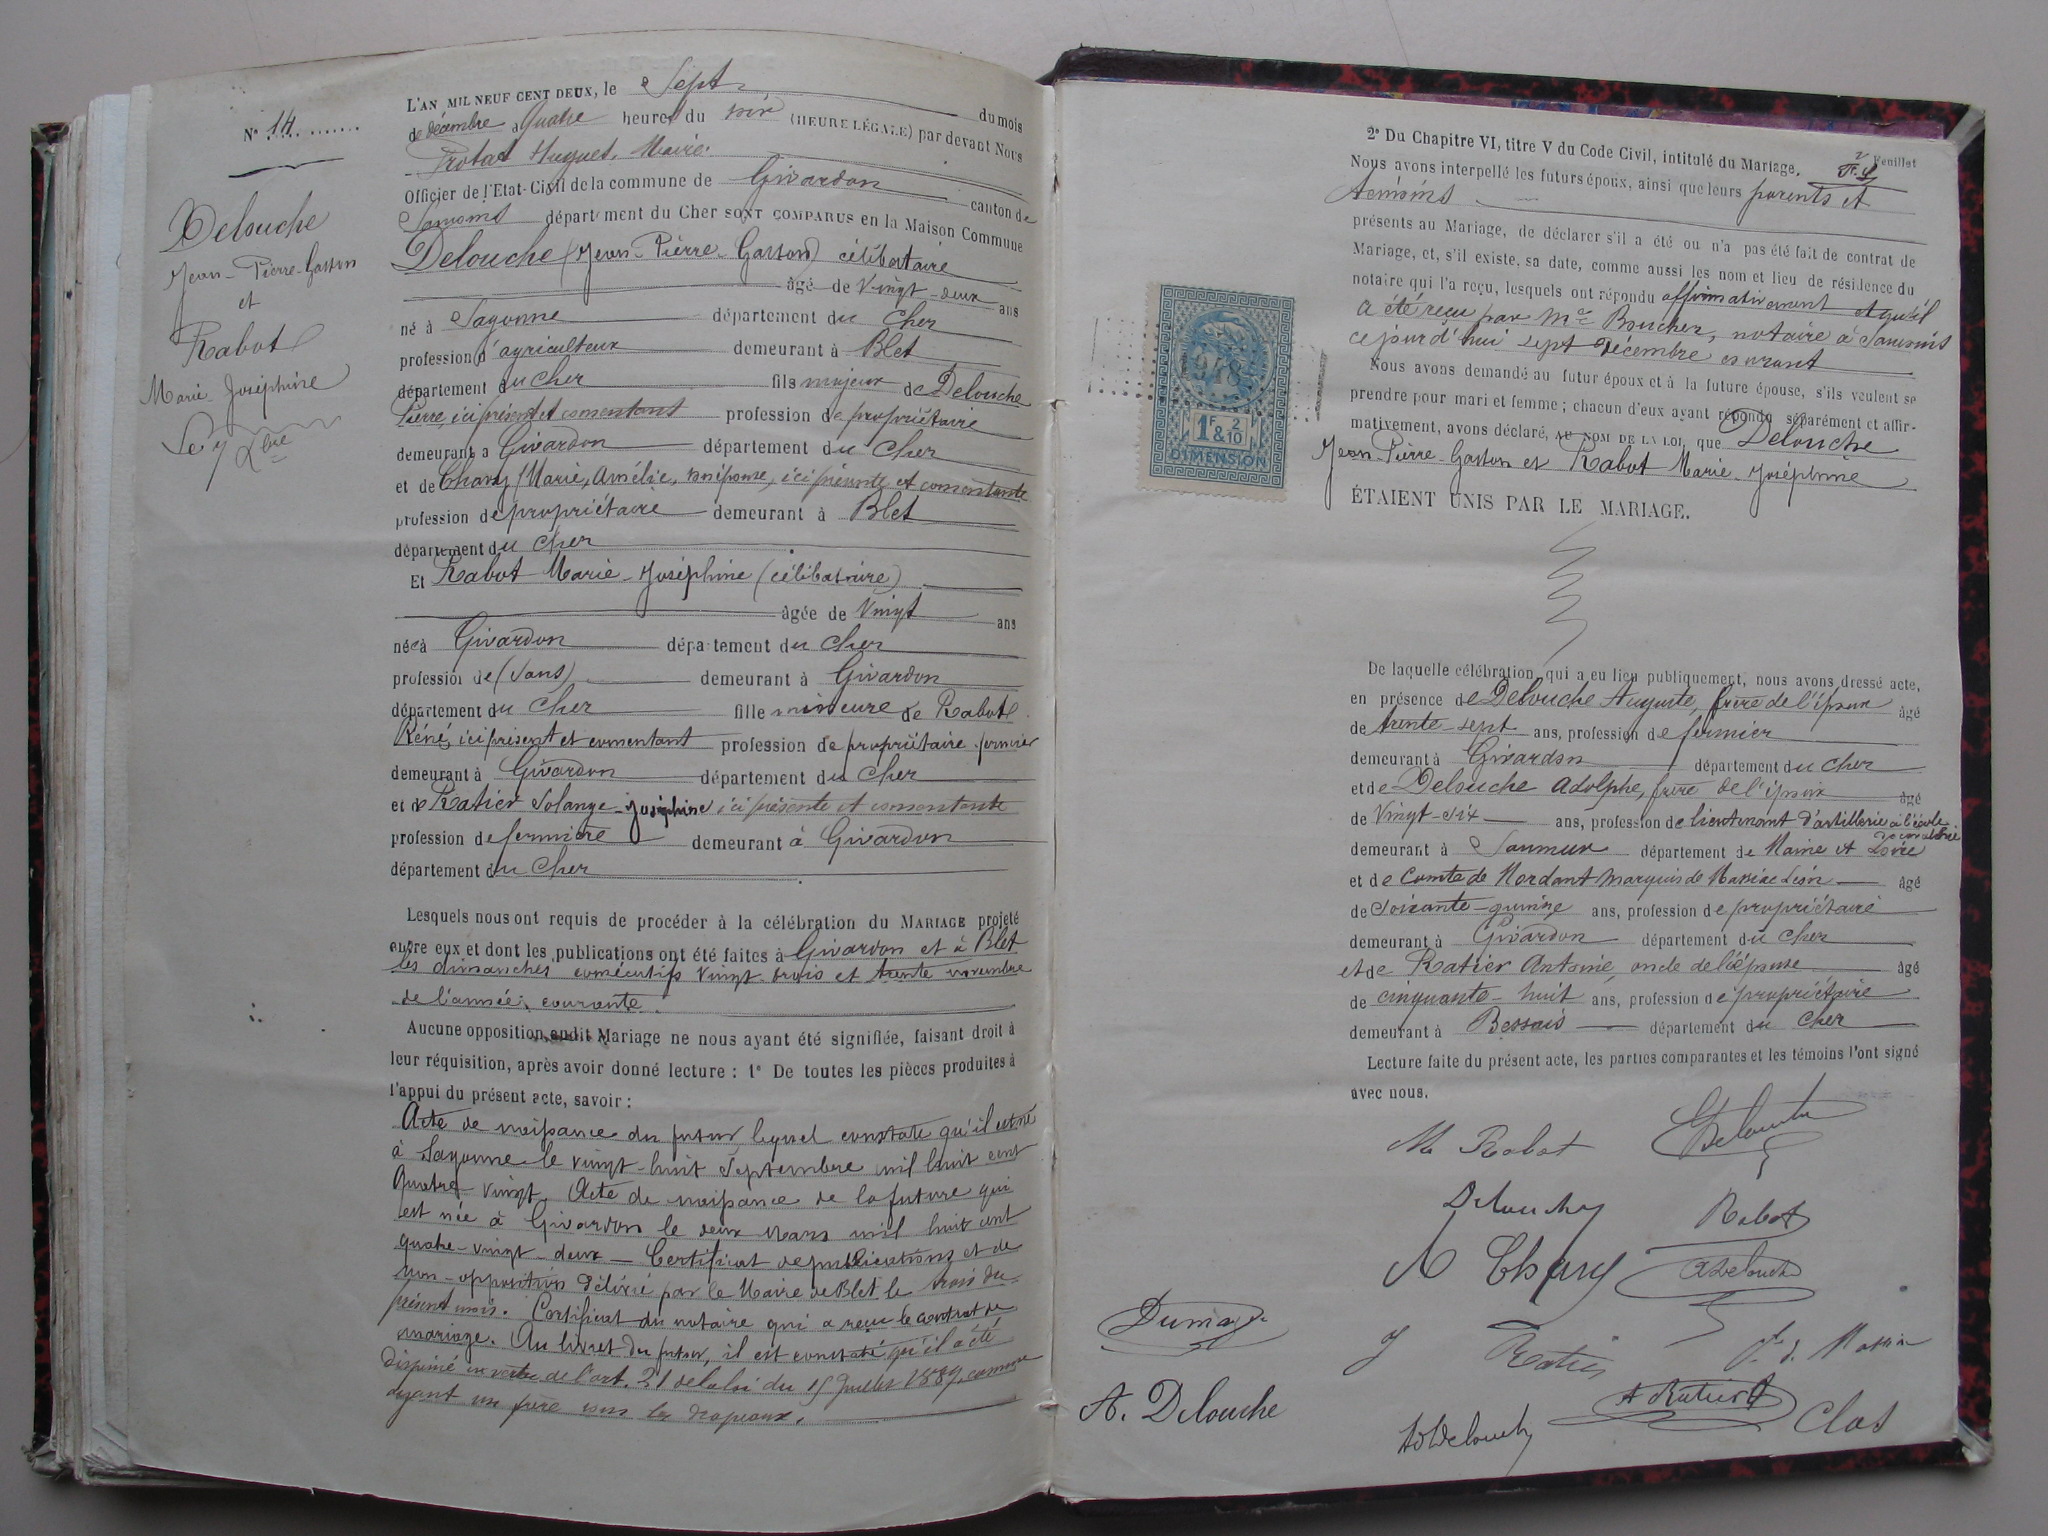 N° 14
Delouche
Jean-Pierre-Gaston
et
Rabot
Marie-Joséphine
Le 7 Xbre
L'AN MIL NEUF CENT DEUX, le Sept du mois
de décembre à Quatre heures du soir (HEURE LÉGALE) par devant Nous
Protat Hugues, Maire.
Officier de l'Etat-Civil de la commune de Givardon canton de
Sancoins département du Cher SONT COMPARUS en la Maison Commune
Delouche (Jean-Pierre-Gaston) célibataire
âgé de Vingt-deux ans
né à Sagonne département du Cher
profession d'agriculteur demeurant à Blet
département du Cher fils majeur de Delouche
Pierre, ici présent et consentant profession de propriétaire
demeurant à Givardon département du Cher
et de Chary (Marie, Amélie, son épouse, ici présente et consentante
profession de propriétaire demeurant à Blet
département du Cher
Et Rabot Marie-Joséphine (célibataire)
âgée de Vingt ans
née à Givardon département du Cher
profession de (sans) demeurant à Givardon
département du Cher fille mineure de Rabot
Réné, ici présent et consentant profession de propriétaire fermier
demeurant à Givardon département du Cher
et de Ratier Solange-Joséphine ici présente et consentante
profession de fermière demeurant à Givardon
département du Cher
Lesquels nous ont requis de procéder à la célébration du MARIAGE projeté
entre eux et dont les publications ont été faites à Givardon et à Blet
les dimanches consécutifs vingt-trois et trente novembre
de l'année courante.
Aucune opposition audit Mariage ne nous ayant été signifiée, faisant droit à
leur réquisition, après avoir donné lecture : 1° De toutes les pièces produites à
l'appui du présent acte, savoir :
Acte de naissance du futur lequel constate qu'il est né
à Sagonne le vingt-huit Septembre mil huit cent
Quatre vingt. Acte de naissance de la future qui
est née à Givardon le deux Mars mil huit cent
quatre-vingt-deux — Certificat de publications et de
non-opposition délivré par le Maire de Blet le trois du
présent mois. Certificat du notaire qui a reçu le contrat de
mariage. Au livret du futur, il est constaté qu'il a été
dispensé en vertu de l'art. 21 de la loi du 15 Juillet 1889, comme
ayant un frère sous les drapeaux.
2° Du Chapitre VI, titre V du Code Civil, intitulé du Mariage. Feuillet
Nous avons interpellé les futurs époux, ainsi que leurs parents et
témoins
présents au Mariage, de déclarer s'il a été ou n'a pas été fait de contrat de
Mariage, et, s'il existe, sa date, comme aussi les nom et lieu de résidence du
notaire qui l'a reçu, lesquels ont répondu affirmativement et qu'il
a été reçu par Me Boucher, notaire à Sancoins
ce jourd'hui sept décembre courant
Nous avons demandé au futur époux et à la future épouse, s'ils veulent se
prendre pour mari et femme ; chacun d'eux ayant répondu séparément et affir-
mativement, avons déclaré, AU NOM DE LA LOI, que Delouche
Jean-Pierre-Gaston et Rabot Marie Joséphine
ÉTAIENT UNIS PAR LE MARIAGE.
948
1F & 2/10
DIMENSION
De laquelle célébration, qui a eu lieu publiquement, nous avons dressé acte,
en présence de Delouche Auguste, frère de l'époux âgé
de trente-sept ans, profession de fermier
demeurant à Givardon département du Cher
et de Delouche Adolphe, frère de l'époux âgé
de Vingt-six ans, profession de lieutenant d'artillerie à l'école
de cavalerie
demeurant à Saumur département de Maine et Loire
et de Comte de Mordant Marquis de Massiac Léon âgé
de Soixante-quinze ans, profession de propriétaire
demeurant à Givardon département du Cher
et de Ratier Antoine, oncle de l'épouse âgé
de cinquante-huit ans, profession de propriétaire
demeurant à Bessais département du Cher
Lecture faite du présent acte, les parties comparantes et les témoins l'ont signé
avec nous.
M Rabot GDelouche
Delouche Rabot
Chary ADelouche
Ratier
A. Delouche
AdDelouche A Ratier Clos